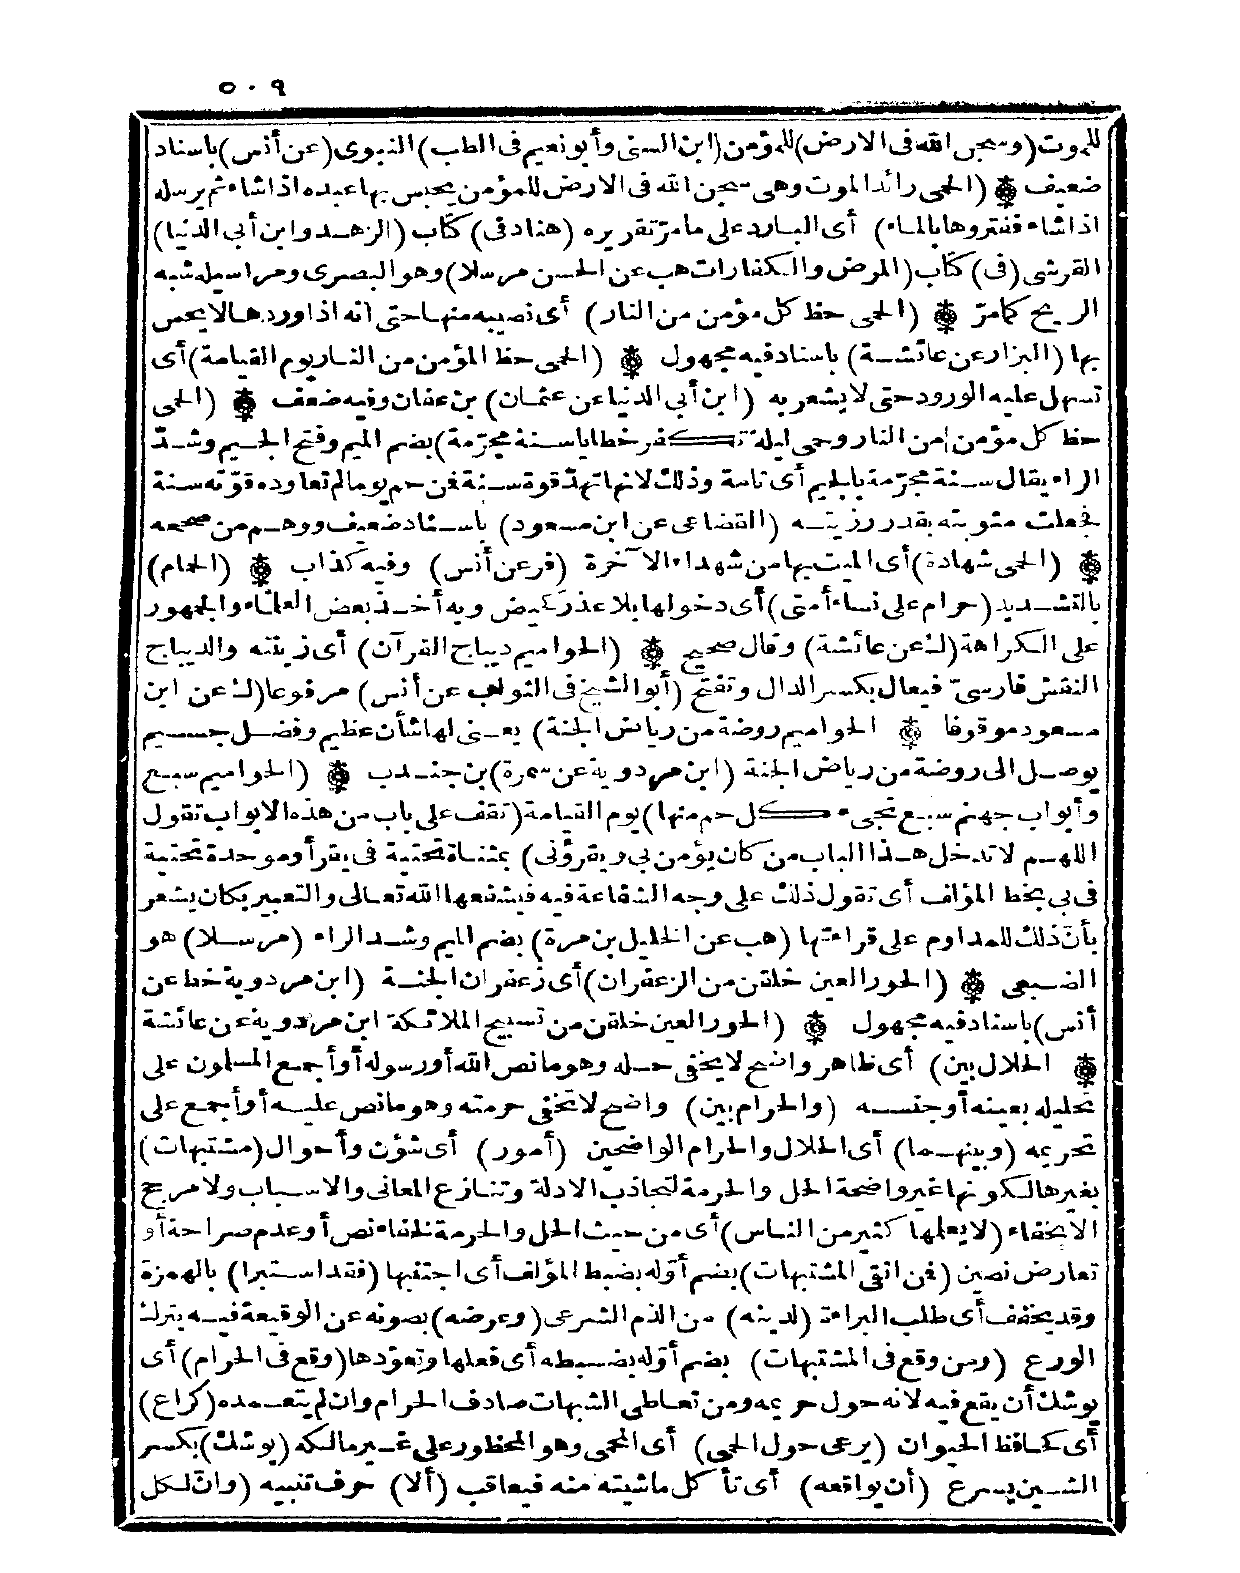 ٥٠٩
للموت (وسجن الله فى الارض) للمؤمن (ابن السنى وأبو نعيم فى الطب) النبوى (عن أنس) باسناد
ضعيف ۞ (الحمى رائد الموت وهى سجن الله فى الارض للمؤمن يحبس بها عبده اذا شاء ثم يرسله
اذا شاء ففتروها بالماء) أى البارد على ما مرّ تقريره (هناد فى) كتاب (الزهد وابن أبى الدنيا)
القرشى (فى) كتاب (المرض والكفارات هب عن الحسن مرسلا) وهو البصرى ومراسيله شبه
الريح كما مرّ ۞ (الحمى حظ كل مؤمن من النار) أى نصيبه منها حتى انه اذا وردها لا يحس
بها (البزار عن عائشة) باسناد فيه مجهول ۞ (الحمى حظ المؤمن من النار يوم القيامة) أى
تسهل عليه الورود حتى لا يشعر به (ابن أبى الدنيا عن عثمان) بن عفان وفيه ضعف ۞ (الحمى
حظ كل مؤمن من النار وحمى ليلة تكفر خطايا سنة مجرّمة) بضم الميم وفتح الجيم وشدّ
الراء يقال سنة مجرّمة بالجيم أى تامة وذلك لانها تهدّ قوة سنة فمن حم يوما لم تعاوده قوّته سنة
فجعلت مثوبته بقدر رزيته (القضاعى عن ابن مسعود) باسناد ضعيف ووهم من صححه
۞ (الحمى شهادة) أى الميت بها من شهداء الآخرة (فر عن أنس) وفيه كذاب ۞ (الحمام)
بالتشديد (حرام على نساء أمتى) أى دخولها بلا عذر كحيض وبه أخذ بعض العلماء والجمهور
على الكراهة (ك عن عائشة) وقال صحيح ۞ (الحواميم ديباج القرآن) أى زينته والديباج
النقش فارسىّ فيعال بكسر الدال وتفتح (أبو الشيخ فى الثواب عن أنس) مرفوعا (ك عن ابن
مسعود موقوفا ۞ الحواميم روضة من رياض الجنة) يعنى لها شأن عظيم وفضل جسيم
يوصل الى روضة من رياض الجنة (ابن مردويه عن سمرة) بن جندب ۞ (الحواميم سبع
وأبواب جهنم سبع تجىء كل حم منها) يوم القيامة (تقف على باب من هذه الابواب تقول
اللهم لا تدخل هذا الباب من كان يؤمن بى ويقرؤنى) بمثناة تحتية فى يقرأ وموحدة تحتية
فى بى بخط المؤلف أى تقول ذلك على وجه الشفاعة فيه فيشفعها الله تعالى والتعبير بكان يشعر
بأنّ ذلك للمداوم على قراءتها (هب عن الخليل بن مرة) بضم الميم وشد الراء (مرسلا) هو
الضبعى ۞ (الحور العين خلقن من الزعفران) أى زعفران الجنة (ابن مردويه خط عن
أنس) باسناد فيه مجهول ۞ (الحور العين خلقن من تسبيح الملائكة ابن مردويه عن عائشة
۞ الحلال بين) أى ظاهر واضح لا يخفى حله وهو ما نص الله أو رسوله أو أجمع المسلمون على
تحليله بعينه أو جنسه (والحرام بين) واضح لا تخفى حرمته وهو ما نص عليه أو أجمع على
تحريمه (وبينهما) أى الحلال والحرام الواضحين (أمور) أى شؤن وأحوال (مشتبهات)
بغيرها لكونها غير واضحة الحل والحرمة لتجاذب الادلة وتنازع المعانى والاسباب ولا مرجح
الا بخفاء (لا يعلمها كثير من الناس) أى من حيث الحل والحرمة لخفاء نص أو عدم صراحة أو
تعارض نصين (فمن اتقى المشتبهات) بضم أوّله بضبط المؤلف أى اجتنبها (فقد استبرا) بالهمزة
وقد يخفف أى طلب البراءة (لدينه) من الذم الشرعى (وعرضه) بصونه عن الوقيعة فيه بترك
الورع (ومن وقع فى المشتبهات) بضم أوّله بضبطه أى فعلها وتعوّدها (وقع فى الحرام) أى
يوشك أن يقع فيه لانه حول حريمه ومن تعاطى الشبهات صادف الحرام وان لم يتعمده (كراع)
أى كحافظ الحيوان (يرعى حول الحمى) أى المحمى وهو المحظور على غير مالكه (يوشك) بكسر
الشين يسرع (أن يواقعه) أى تأكل ماشيته منه فيعاقب (ألا) حرف تنبيه (وانّ لكل